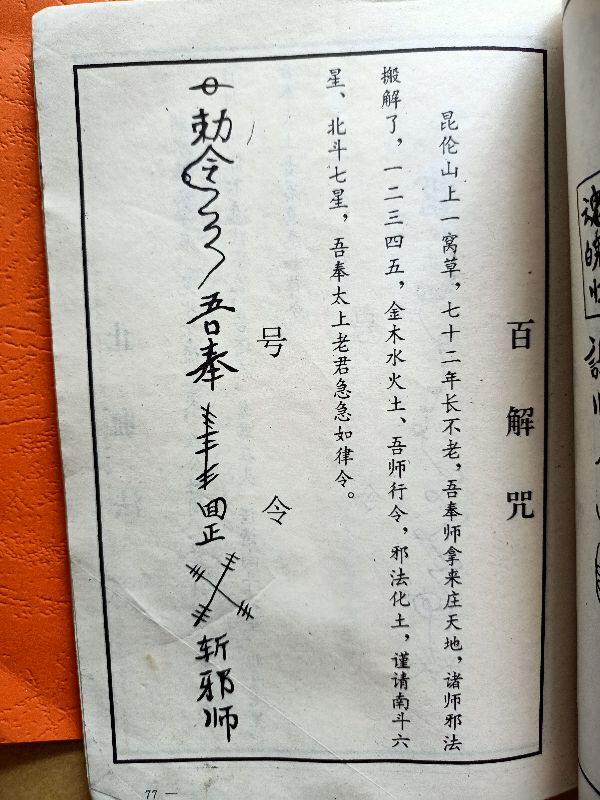 百解咒
昆伦山上一窝草，七十二年长不老，吾奉师拿来庄天地，诸师邪法
搬解了，一二三四五，金木水火土、吾师行令，邪法化土，谨请南斗六
星、北斗七星，吾奉太上老君急急如律令。
号令
勅令
吾奉
斩邪师
77 —